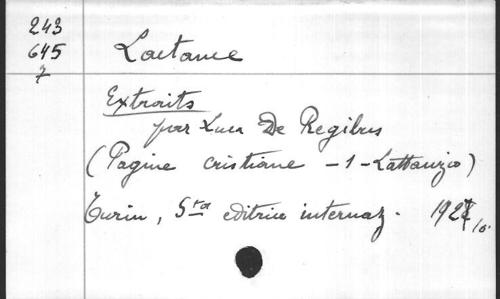 243
645
7
Lactance
Extraits
par Luca De Regibus
(Pagine cristiane - 1 - Lattanzio)
Turin, Sta editrice internaz.